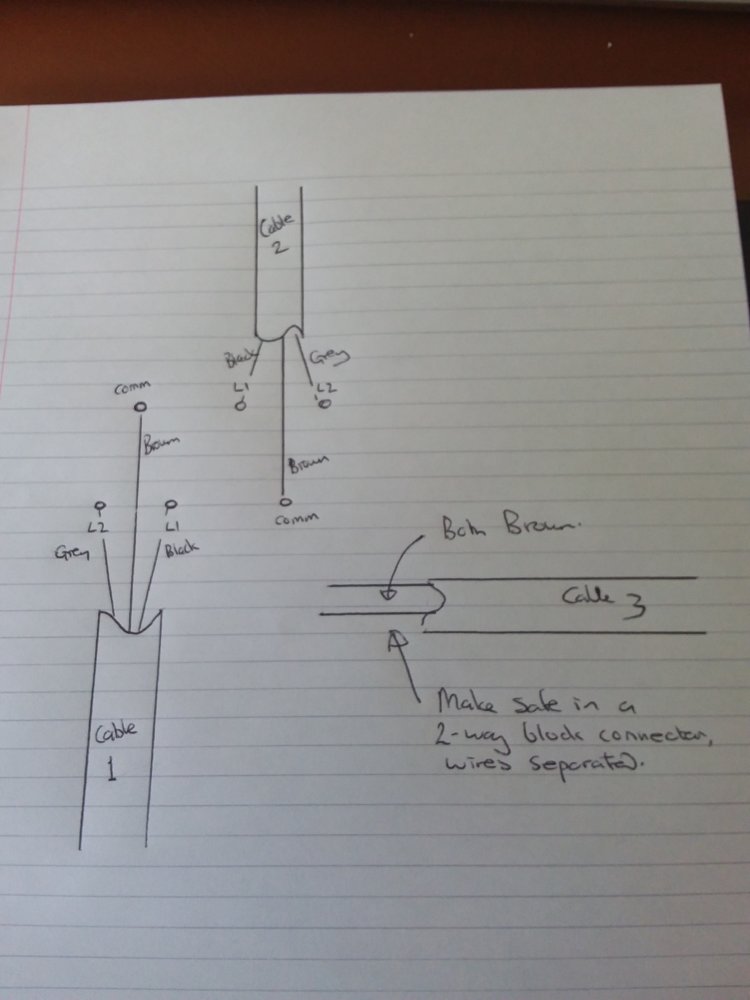 Cable
2
Black
Grey
L1
L2
Brown
Comm
Comm
Brown
L2
L1
Grey
Black
Cable
1
Both Brown.
Cable 3
Make safe in a
2-way block connector,
wires separated.